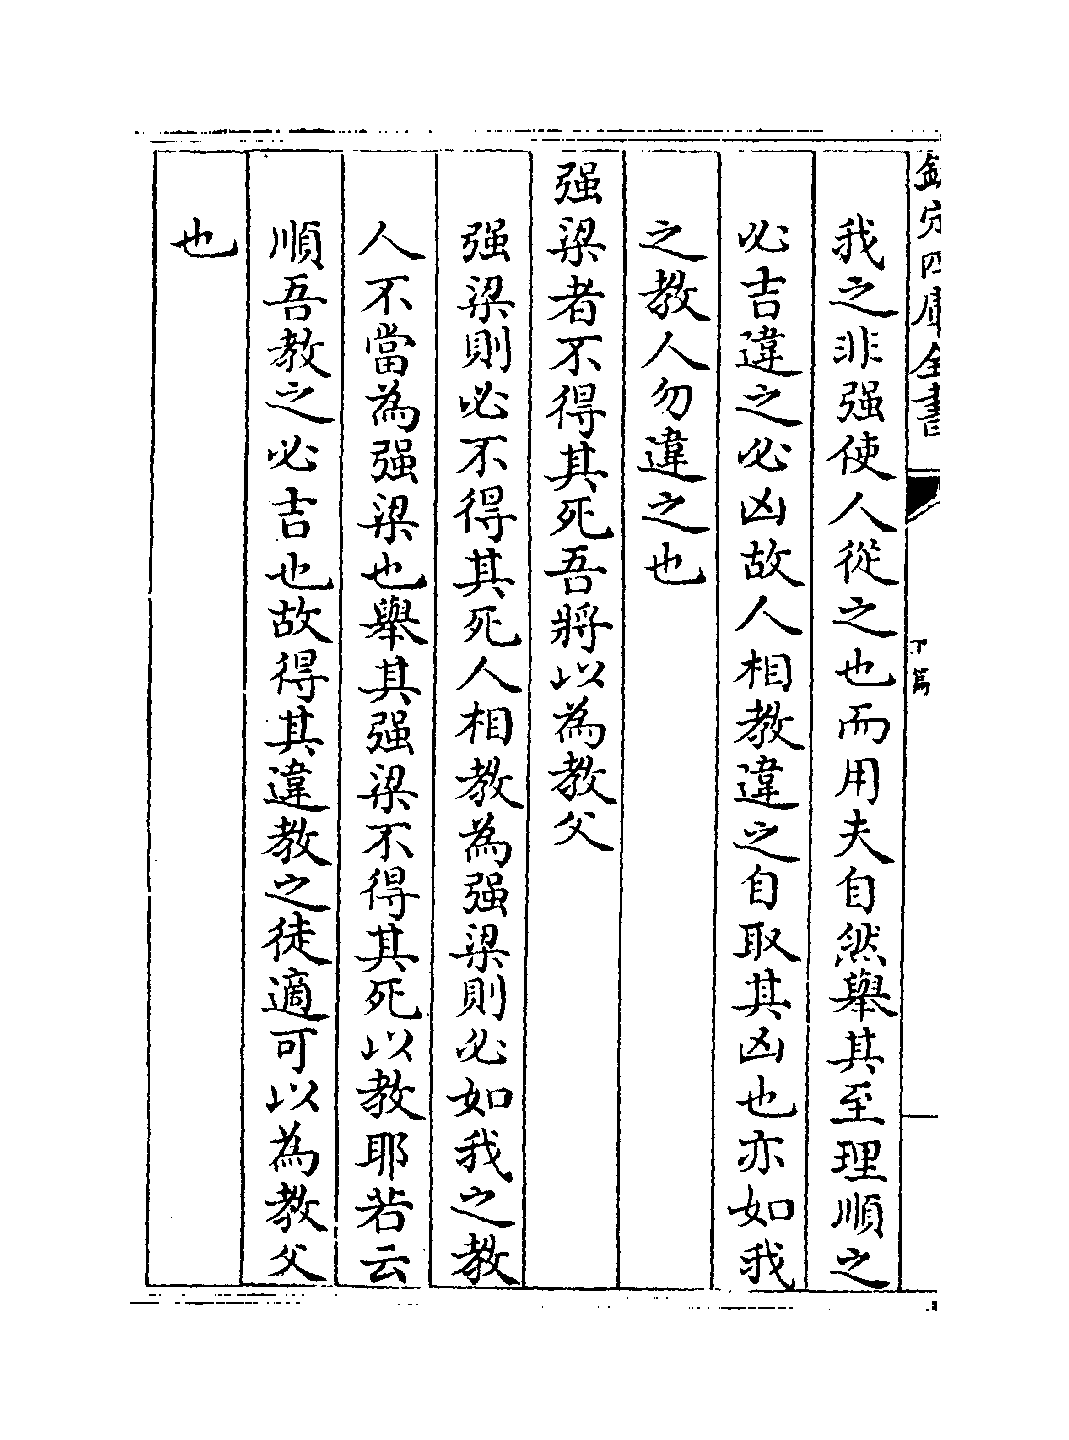 欽定四庫全書
下篇
我之非强使人從之也而用夫自然舉其至理順之
必吉違之必凶故人相教違之自取其凶也亦如我
之教人勿違之也
强梁者不得其死吾將以為教父
强梁則必不得其死人相教為强梁則必如我之教
人不當為强梁也舉其强梁不得其死以教耶若云
順吾教之必吉也故得其違教之徒適可以為教父
也